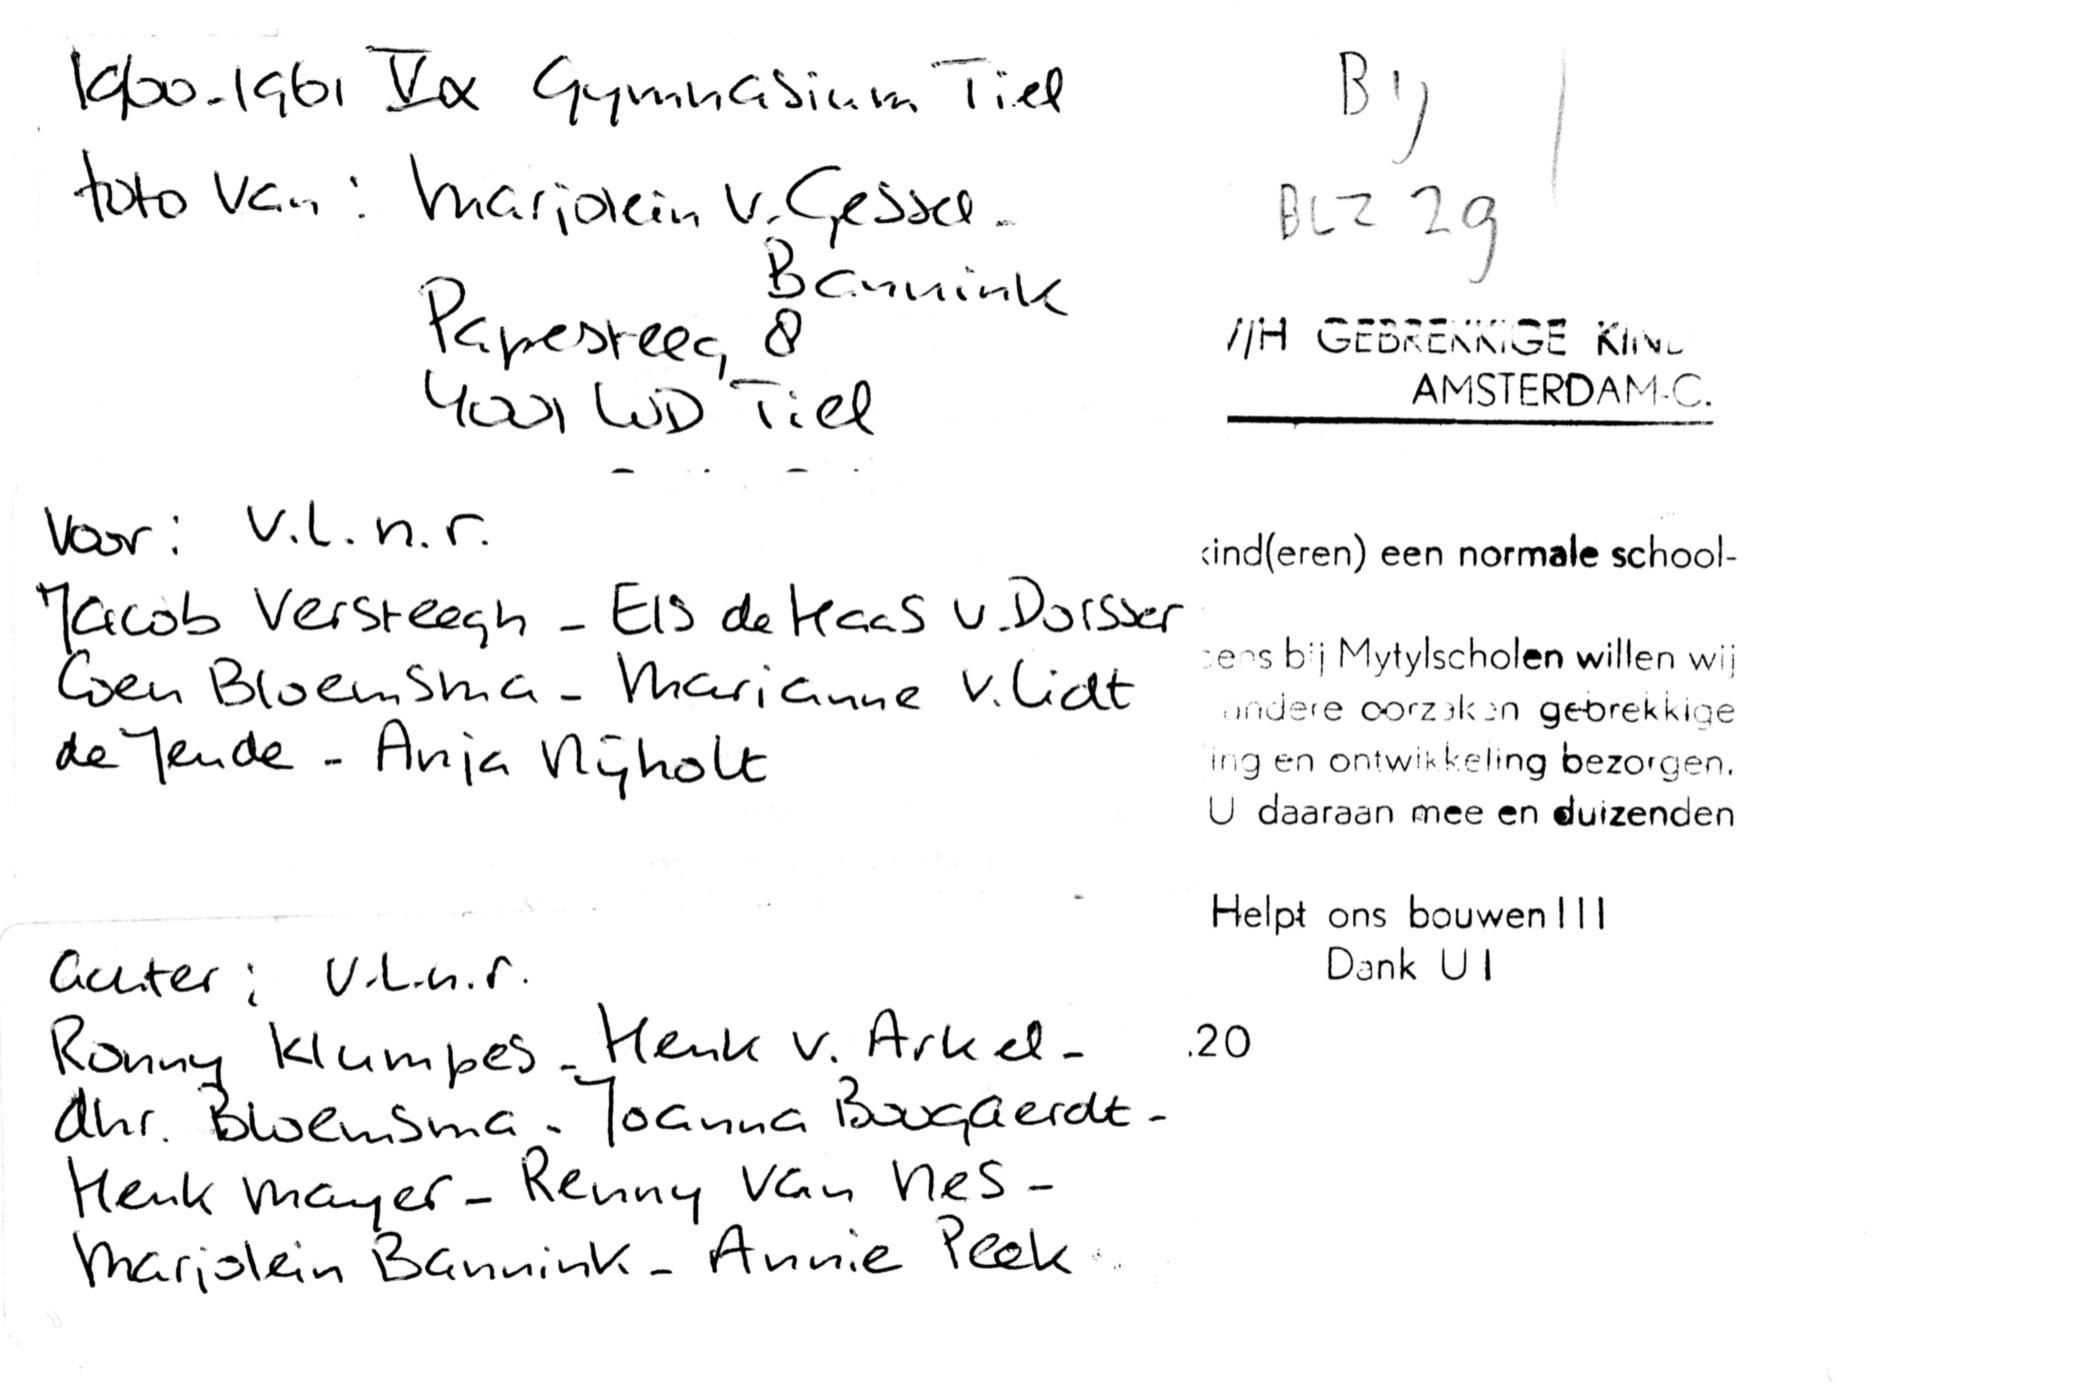 1960-1961 Vα Gymnasium Tiel
foto van: Marjolein v. Gessel-
Bannink
Papesteeg 8
4001 WD Tiel
Voor: v.l.n.r.
Jacob Versteegh - Els de Haas v. Dorsser
Coen Bloemsma - Marianne v. Lidt
de Jeude - Anja Nijholt
achter: v.l.n.r.
Ronny Klumpes - Henk v. Arkel -
dhr. Bloemsma - Joanna Boogaerdt -
Henk Mayer - Renny van Nes -
Marjolein Bannink - Annie Peek
Bij
BLZ 29
GEBREKKIGE KIND
AMSTERDAM-C.
kind(eren) een normale school-
bij Mytylscholen willen wij
andere oorzaken gebrekkige
ing en ontwikkeling bezorgen.
U daaraan mee en duizenden
Helpt ons bouwen!!!
Dank U!
.20